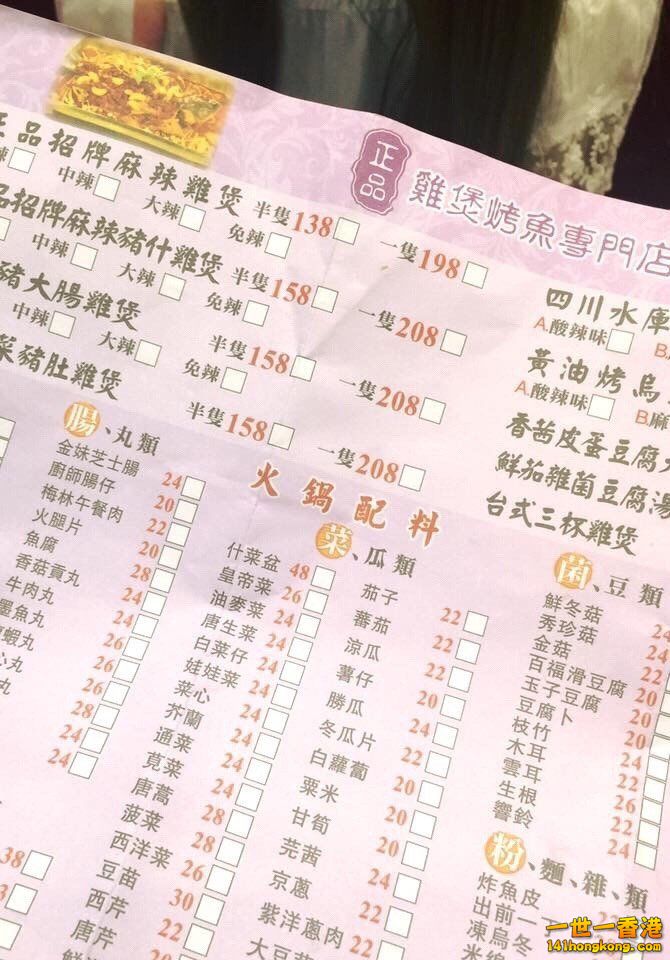 正品
雞煲烤魚專門店
正品招牌麻辣雞煲 半隻138 一隻198
中辣 大辣 免辣
招牌麻辣豬什雞煲 半隻158 一隻208
中辣 大辣 免辣
豬大腸雞煲 半隻158 一隻208
中辣 大辣 免辣
豬肚雞煲 半隻158 一隻208
四川水庫
A.酸辣味 B.
黃油烤烏
A.酸辣味 B.麻
香茜皮蛋豆腐
鮮茄雜菌豆腐湯
台式三杯雞煲
火鍋配料
腸、丸類
金妹芝士腸 24
廚師腸仔 20
梅林午餐肉 22
火腿片 20
魚腐 28
香菇貢丸 24
牛肉丸 24
墨魚丸 26
蝦丸 26
心丸 28
丸 24
24
菜、瓜類
什菜盆 48
皇帝菜 26
油麥菜 24
唐生菜 24
白菜仔 22
娃娃菜 24
菜心 24
芥蘭 24
通菜 24
莧菜 24
唐蒿 28
菠菜 28
西洋菜 26
豆苗 30
西芹 22
唐芹 24
茄子 22
蕃茄 22
涼瓜 22
薯仔 20
勝瓜 24
冬瓜片 22
白蘿蔔 20
粟米 22
甘筍 20
芫茜 24
京蔥 22
紫洋蔥肉 24
大豆
菌、豆類
鮮冬菇
秀珍菇 24
金菇 22
百福滑豆腐 20
玉子豆腐 20
豆腐卜 20
枝竹 24
木耳 22
雲耳 26
生根 22
響鈴
粉、麵、雜類
炸魚皮
出前一丁
凍烏冬
米線
一世一香港
141hongkong.com